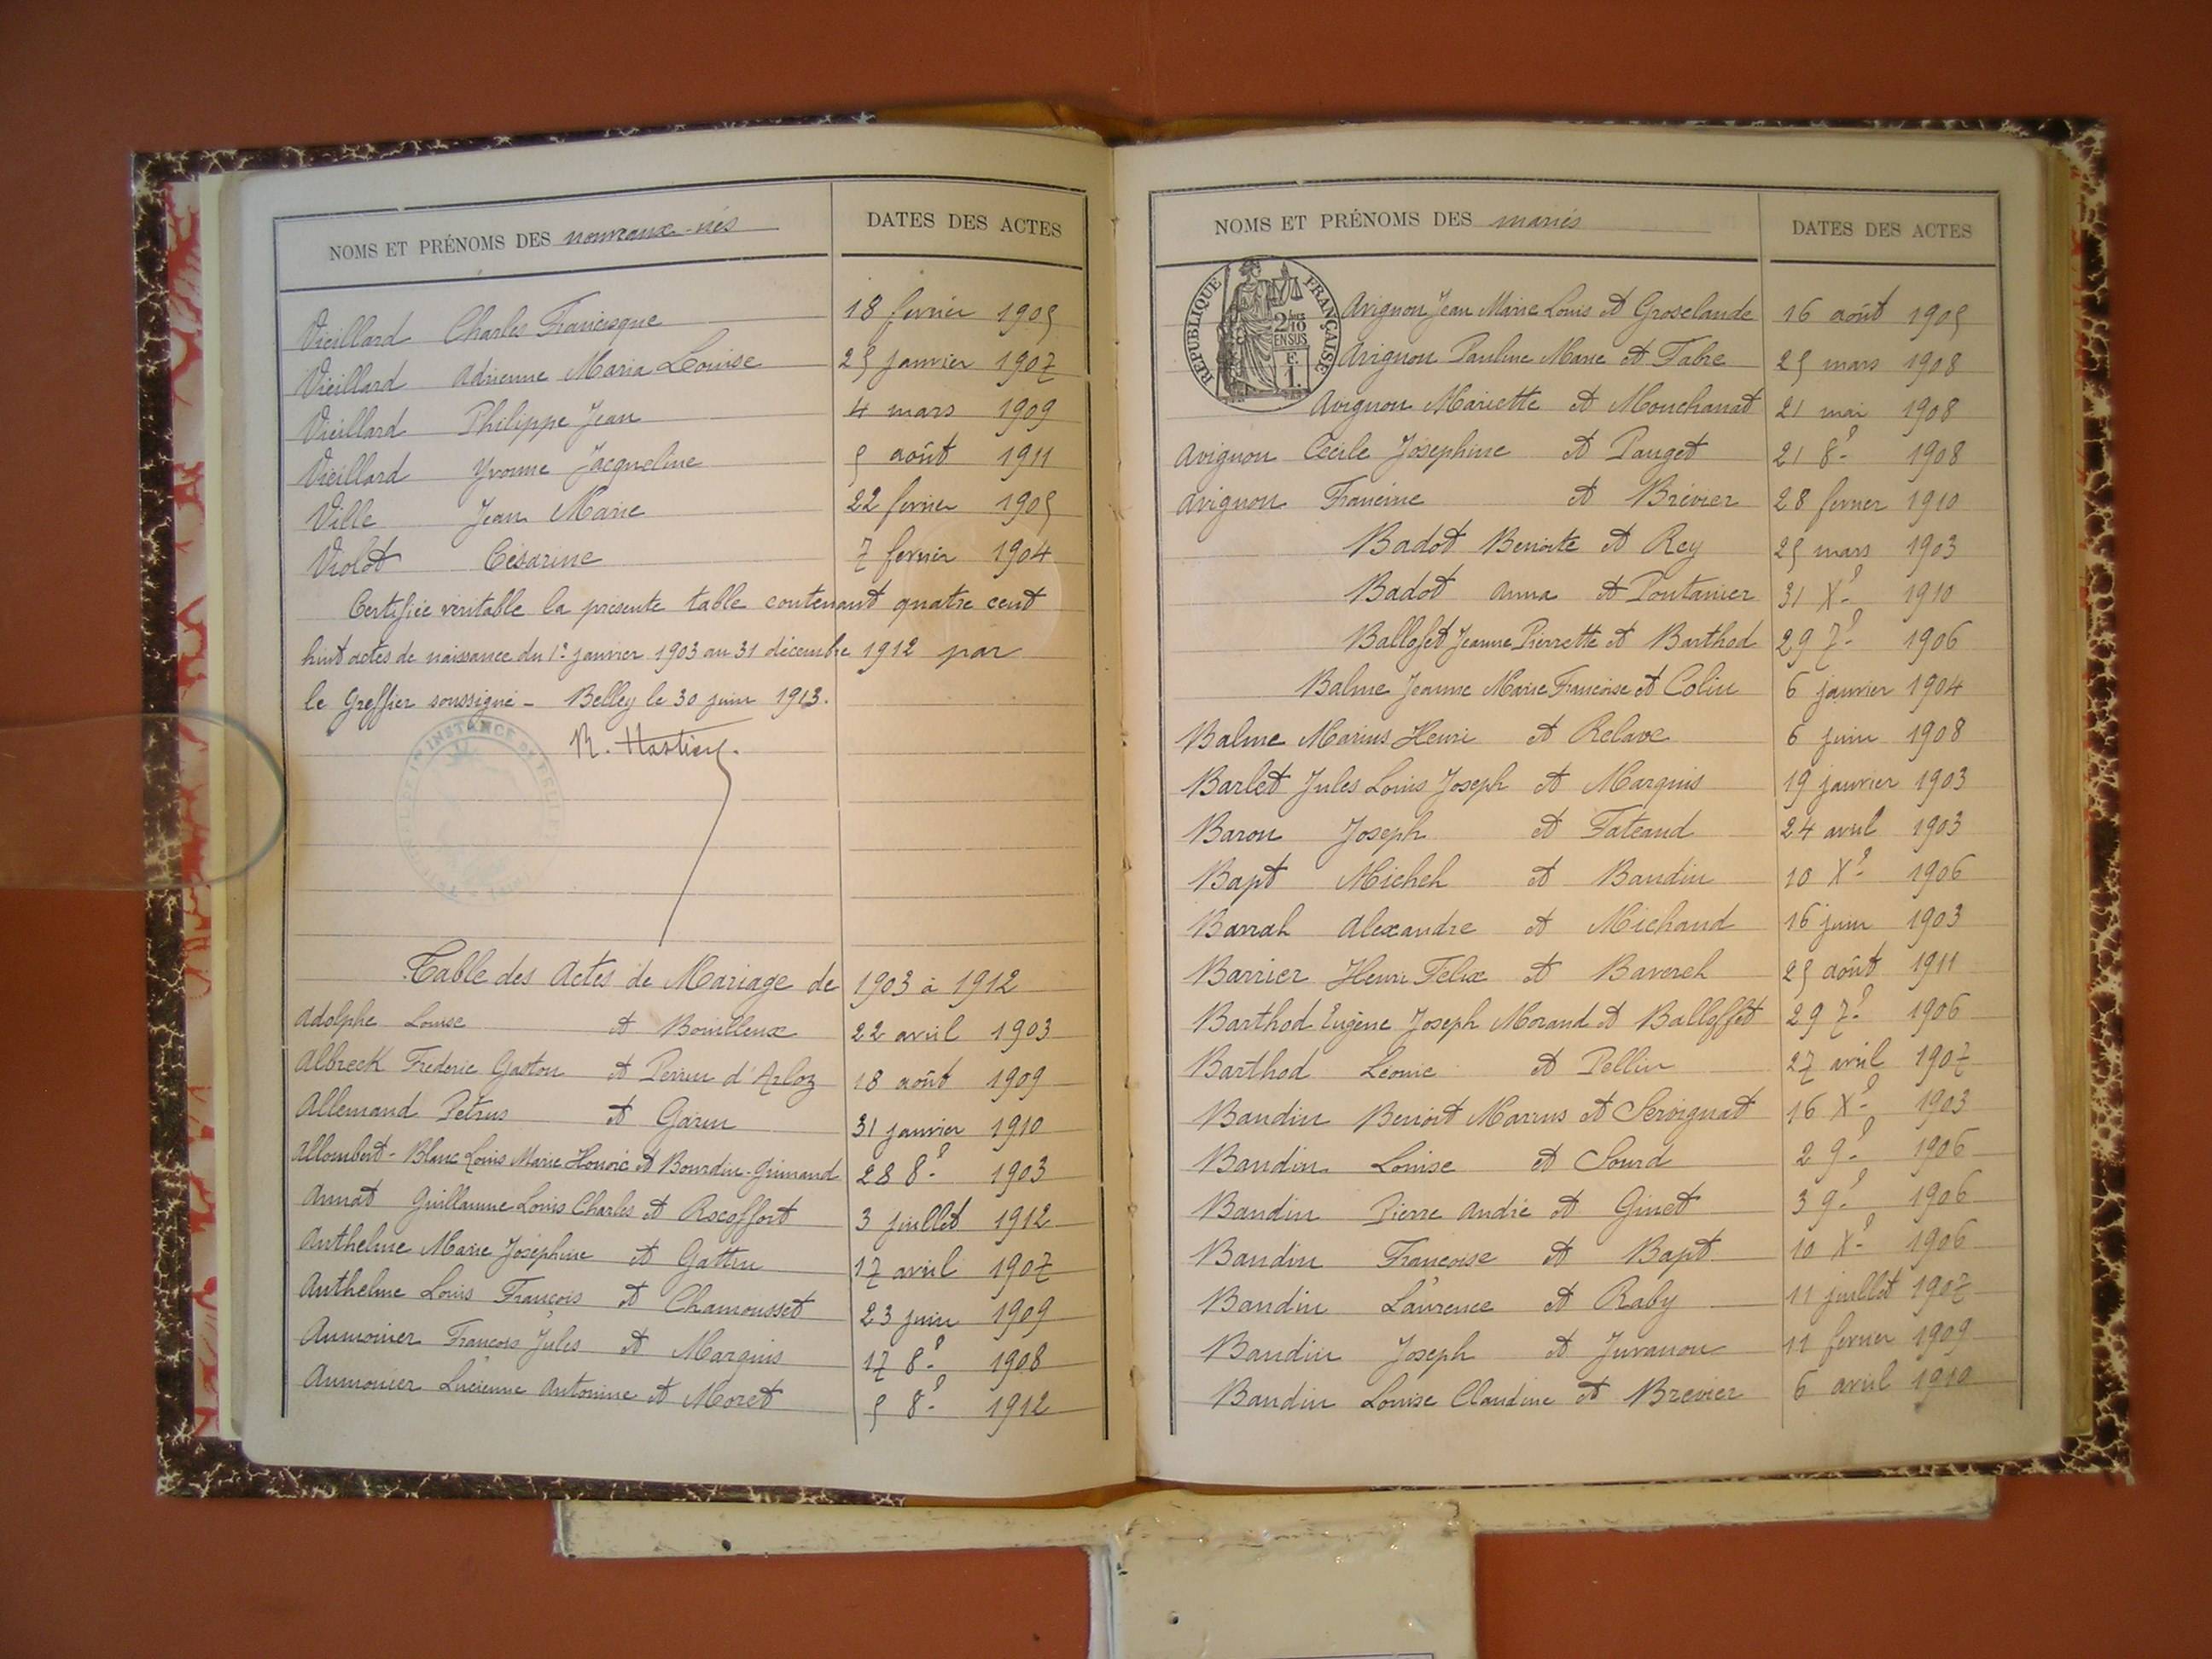 NOMS ET PRÉNOMS DES nouveaux-nés DATES DES ACTES
Vieillard Charles Francisque 18 fevrier 1905
Vieillard Adrienne Maria Louise 25 janvier 1907
Vieillard Philippe Jean 4 mars 1909
Vieillard Yvonne Jacqueline 5 août 1911
Ville Jean Marie 22 fevrier 1905
Violot Césarine 7 fevrier 1904
Certifiée véritable la présente table contenant quatre cent
huit actes de naissance du 1er janvier 1903 au 31 décembre 1912 par
le Greffier soussigné - Belley le 30 juin 1913.
R. Hastier
INSTANCE
Table des Actes de Mariage de 1903 à 1912
Adolphe Louise et Bouilleux 22 avril 1903
Albreck Frederic Gaston et Perrin d'Arloz 18 août 1909
Allemand Petrus et Garin 31 janvier 1910
Allombert-Blanc Louis Marie Honoré et Bourdin-Grimand 28 8e 1903
Amat Guillaume Louis Charles et Rocoffort 3 juillet 1912
Anthelme Marie Joséphine et Gattin 17 avril 1907
Anthelme Louis François et Chamousset 23 juin 1909
Aumonier François Jules et Marquis 17 8e 1908
Aumonier Lucienne Antonine et Moret 5 8e 1912
NOMS ET PRÉNOMS DES mariés DATES DES ACTES
RÉPUBLIQUE FRANÇAISE
2/10
EN SUS
F.
1.
Avignon Jean Marie Louis et Groselande 16 août 1905
Avignon Pauline Marie et Fabre 25 mars 1908
Avignon Mariette et Mouchanat 21 mai 1908
Avignon Cécile Joséphine et Pauget 21 8e 1908
Avignon Francine et Brévier 28 fevrier 1910
Badot Benoite et Rey 25 mars 1903
Badot Anna et Pontanier 31 Xe 1910
Ballofet Jeanne Pierrette et Barthod 29 7e 1906
Balme Jeanne Marie Francoise et Colin 6 janvier 1904
Balme Marius Henri et Relave 6 juin 1908
Barlet Jules Louis Joseph et Marquis 19 janvier 1903
Baron Joseph et Fateaud 24 avril 1903
Bapt Michel et Baudin 10 Xe 1906
Barral Alexandre et Michaud 16 juin 1903
Barrier Henri Felix et Baverel 25 août 1911
Barthod Eugène Joseph Morand et Balloffet 29 7e 1906
Barthod Léonie et Pellin 27 avril 1907
Baudin Benoit Marius et Seroignat 16 Xe 1903
Baudin Louise et Sourd 2 9e 1906
Baudin Pierre André et Ginet 3 9e 1906
Baudin Francoise et Bapt 10 Xe 1906
Baudin Laurence et Raby 11 juillet 1907
Baudin Joseph et Juvanon 11 fevrier 1909
Baudin Louise Claudine et Brevier 6 avril 1910